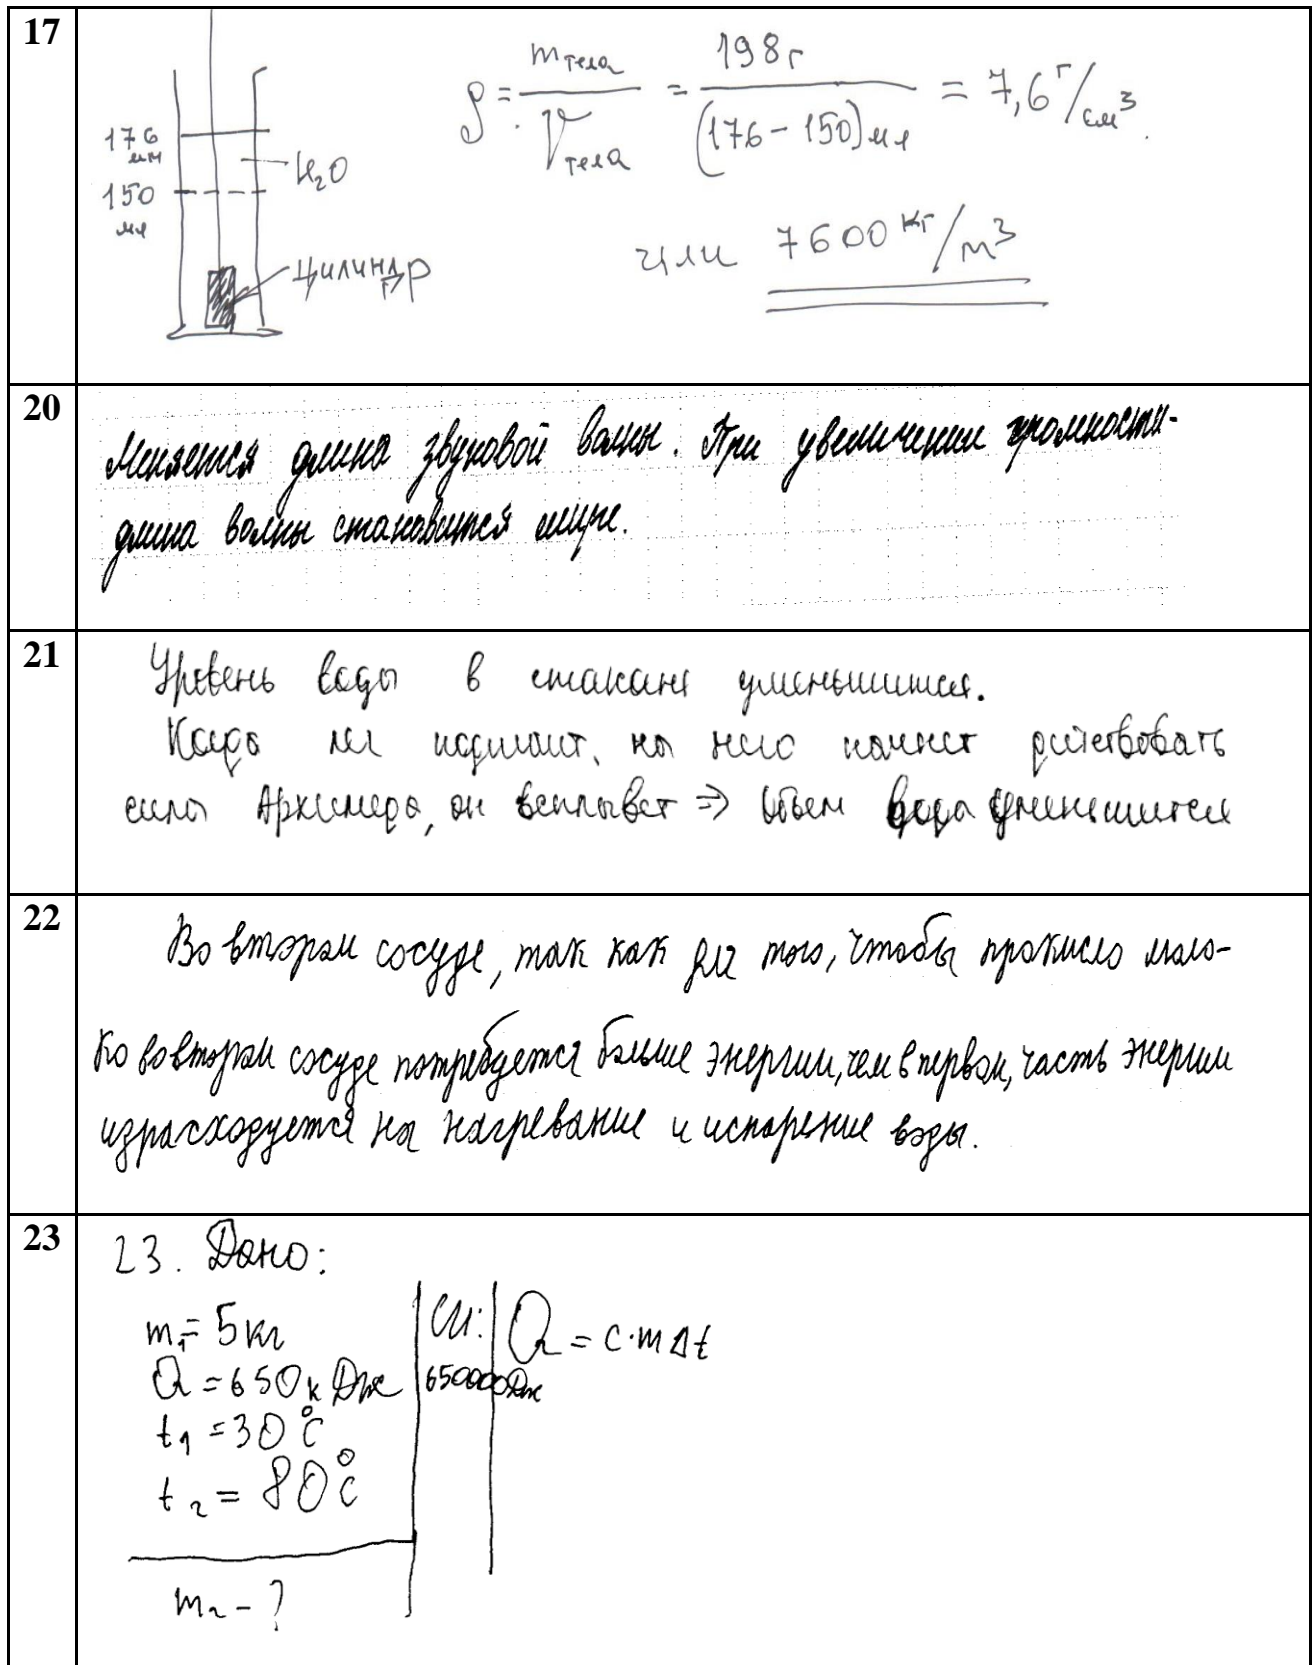 17
ρ = mтела / Vтела = 198 г / (176 - 150) мл = 7,6 г/см³.
176 мл
H₂O
150 мл
или 7600 кг/м³
цилиндр
20
Меняется длина звуковой волны. При увеличении громкости-
длина волны становится шире.
21
Уровень воды в стакане уменьшится.
Когда лёд подтает, на него начнет действовать
сила Архимеда, он всплывет ⇒ объем вода уменьшится
22
Во втором сосуде, так как для того, чтобы прокисло моло-
ко во втором сосуде потребуется больше энергии, чем в первом, часть энергии
израсходуется на нагревание и испарение воды.
23
23. Дано:
m₁ = 5 кг
СИ:
Q = c·mΔt
Q = 650 кДж
650000 Дж
t₁ = 30°C
t₂ = 80°C
m₂ - ?